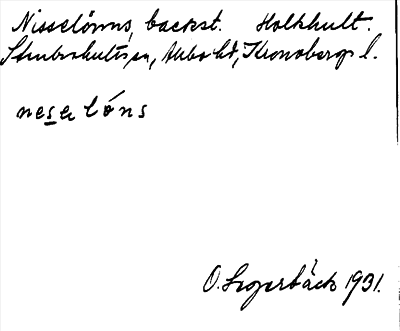 Nisselönns, backst. Holkhult.
Stenbrohults sn, Allbo hd, Kronobergs l.
nesa lóns
O. Segerbäck 1931.